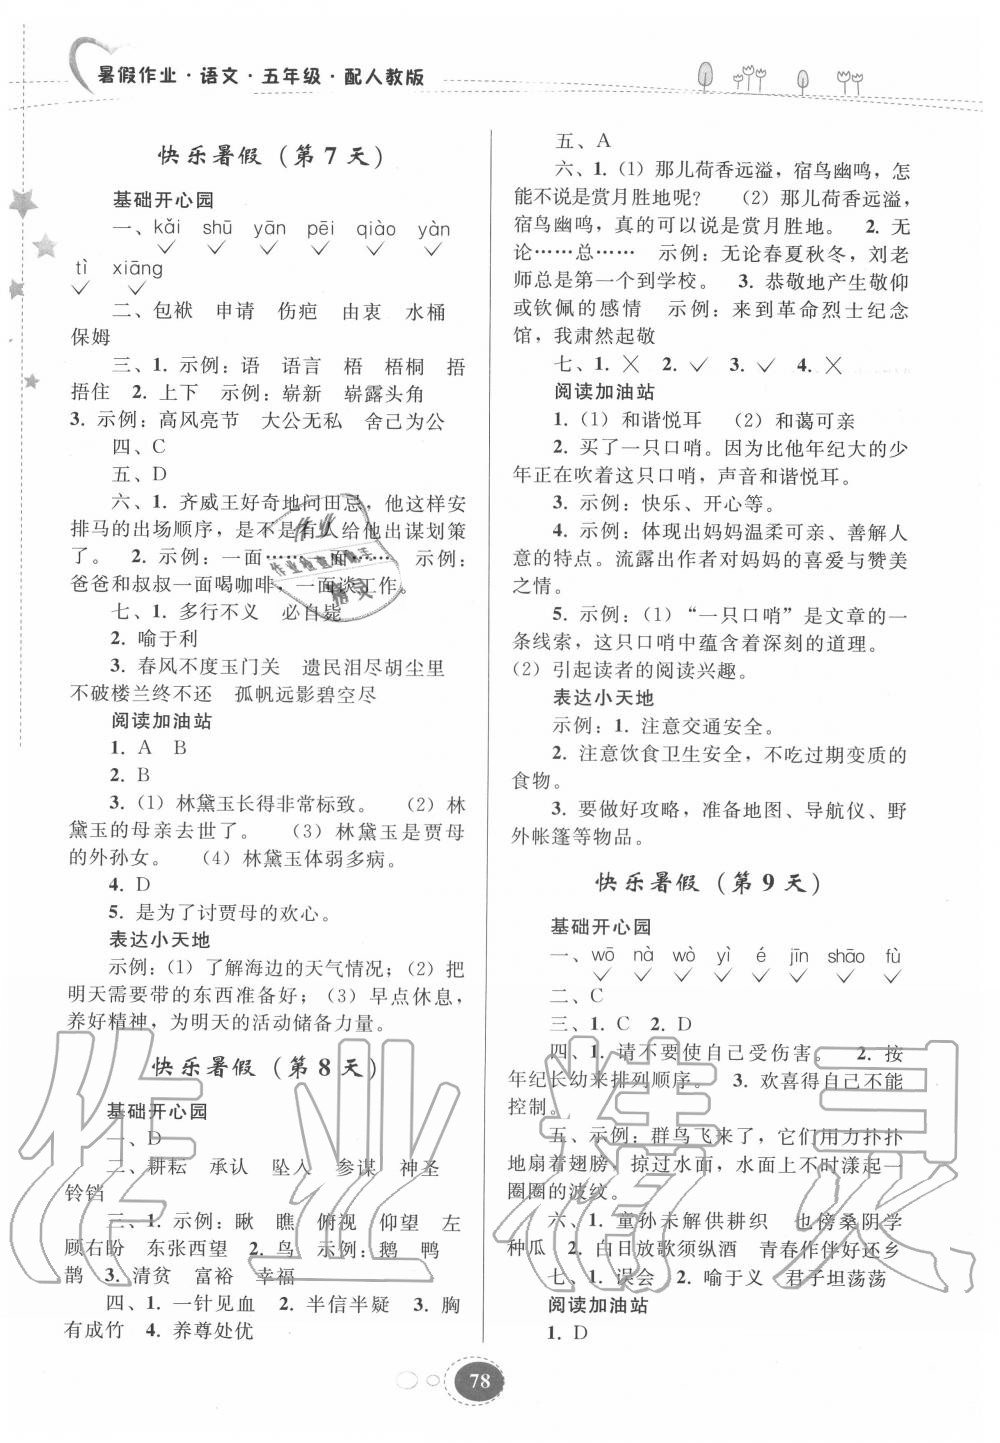 暑假作业·语文·五年级·配人教版
快乐暑假（第7天）
基础开心园
一、kǎi shū yān pēi qiào yàn
✓ ✓ ✓ ✓ ✓ ✓
tì xiāng
✓ ✓
二、包袱 申请 伤疤 由衷 水桶
保姆
三、1. 示例：语 语言 梧 梧桐 捂
捂住 2. 上下 示例：崭新 崭露头角
3. 示例：高风亮节 大公无私 舍己为公
四、C
五、D
六、1. 齐威王好奇地问田忌，他这样安
排马的出场顺序，是不是有人给他出谋划策
了。 2. 示例：一面……一面…… 示例：
爸爸和叔叔一面喝咖啡，一面谈工作。
七、1. 多行不义 必自毙
2. 喻于利
3. 春风不度玉门关 遗民泪尽胡尘里
不破楼兰终不还 孤帆远影碧空尽
阅读加油站
1. A B
2. B
3.（1）林黛玉长得非常标致。 （2）林
黛玉的母亲去世了。 （3）林黛玉是贾母
的外孙女。 （4）林黛玉体弱多病。
4. D
5. 是为了讨贾母的欢心。
表达小天地
示例：（1）了解海边的天气情况；（2）把
明天需要带的东西准备好；（3）早点休息，
养好精神，为明天的活动储备力量。
快乐暑假（第8天）
基础开心园
一、D
二、耕耘 承认 坠入 参谋 神圣
铃铛
三、1. 示例：瞅 瞧 俯视 仰望 左
顾右盼 东张西望 2. 鸟 示例：鹅 鸭
鹊 3. 清贫 富裕 幸福
四、1. 一针见血 2. 半信半疑 3. 胸
有成竹 4. 养尊处优
五、A
六、1.（1）那儿荷香远溢，宿鸟幽鸣，怎
能不说是赏月胜地呢？ （2）那儿荷香远溢，
宿鸟幽鸣，真的可以说是赏月胜地。 2. 无
论……总…… 示例：无论春夏秋冬，刘老
师总是第一个到学校。 3. 恭敬地产生敬仰
或钦佩的感情 示例：来到革命烈士纪念
馆，我肃然起敬
七、1. ╳ 2. ✓ 3. ✓ 4. ╳
阅读加油站
1.（1）和谐悦耳 （2）和蔼可亲
2. 买了一只口哨。因为比他年纪大的少
年正在吹着这只口哨，声音和谐悦耳。
3. 示例：快乐、开心等。
4. 示例：体现出妈妈温柔可亲、善解人
意的特点。流露出作者对妈妈的喜爱与赞美
之情。
5. 示例：（1）“一只口哨”是文章的一
条线索，这只口哨中蕴含着深刻的道理。
（2）引起读者的阅读兴趣。
表达小天地
示例：1. 注意交通安全。
2. 注意饮食卫生安全，不吃过期变质的
食物。
3. 要做好攻略，准备地图、导航仪、野
外帐篷等物品。
快乐暑假（第9天）
基础开心园
一、wō nà wò yì é jīn shāo fù
✓ ✓ ✓ ✓ ✓ ✓ ✓ ✓
二、C
三、1. C 2. D
四、1. 请不要使自己受伤害。 2. 按
年纪长幼来排列顺序。 3. 欢喜得自己不能
控制。
五、示例：群鸟飞来了，它们用力扑扑
地扇着翅膀，掠过水面，水面上不时漾起一
圈圈的波纹。
六、1. 童孙未解供耕织 也傍桑阴学
种瓜 2. 白日放歌须纵酒 青春作伴好还乡
七、1. 误会 2. 喻于义 君子坦荡荡
阅读加油站
1. D
78
作业精灵